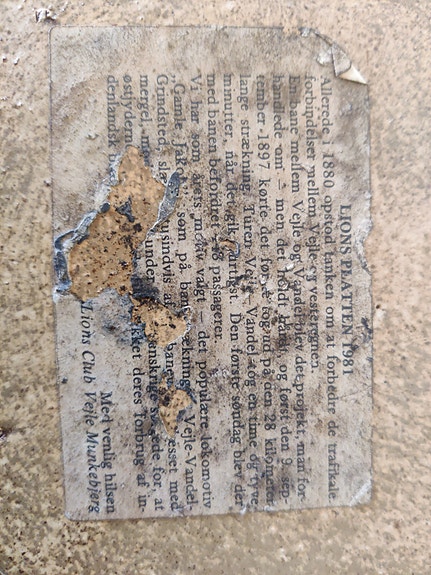 LIONS PLATTEN 1981
Allerede i 1880 opstod tanken om at forbedre de trafikale
forbindelser mellem Vejle og vestegnen.
mellem Vejle og Vandel blev det projekt, man for-
handlede om – men det holdt hårdt, og først den 9. sep-
tember 1897 kørte det første tog ud på den 28 kilometer
lange strækning. Turen Vejle-Vandel tog en time og tyve
minutter, når det gik hurtigst. Den første søndag blev der
med banen befordret passagerer.
Vi har som årets motiv valgt – det populære lokomotiv
„Gamle Jakob“ som på banestrækningen Vejle-Vandel-
Grindsted, slæ usindvis af med
mergel, under for, at
østjyden deres forbrug af in-
denlandsk
Med venlig hilsen
Lions Club Vejle Munkebjerg